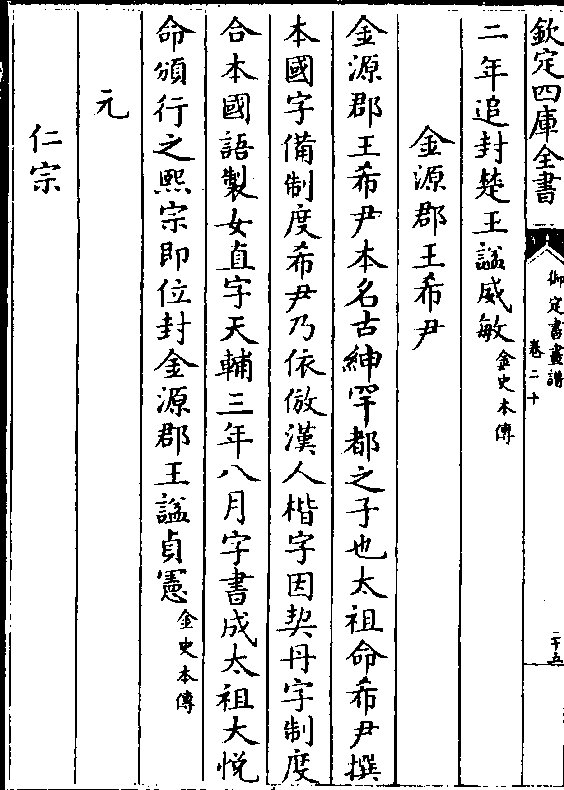 欽定四庫全書
御定書畫譜
卷二十
二十五
二年追封楚王諡威敏金史本傳
金源郡王希尹
金源郡王希尹本名古紳罕都之子也太祖命希尹撰
本國字備制度希尹乃依倣漢人楷字因契丹字制度
合本國語製女直字天輔三年八月字書成太祖大悅
命頒行之熙宗即位封金源郡王諡貞憲金史本傳
元
仁宗